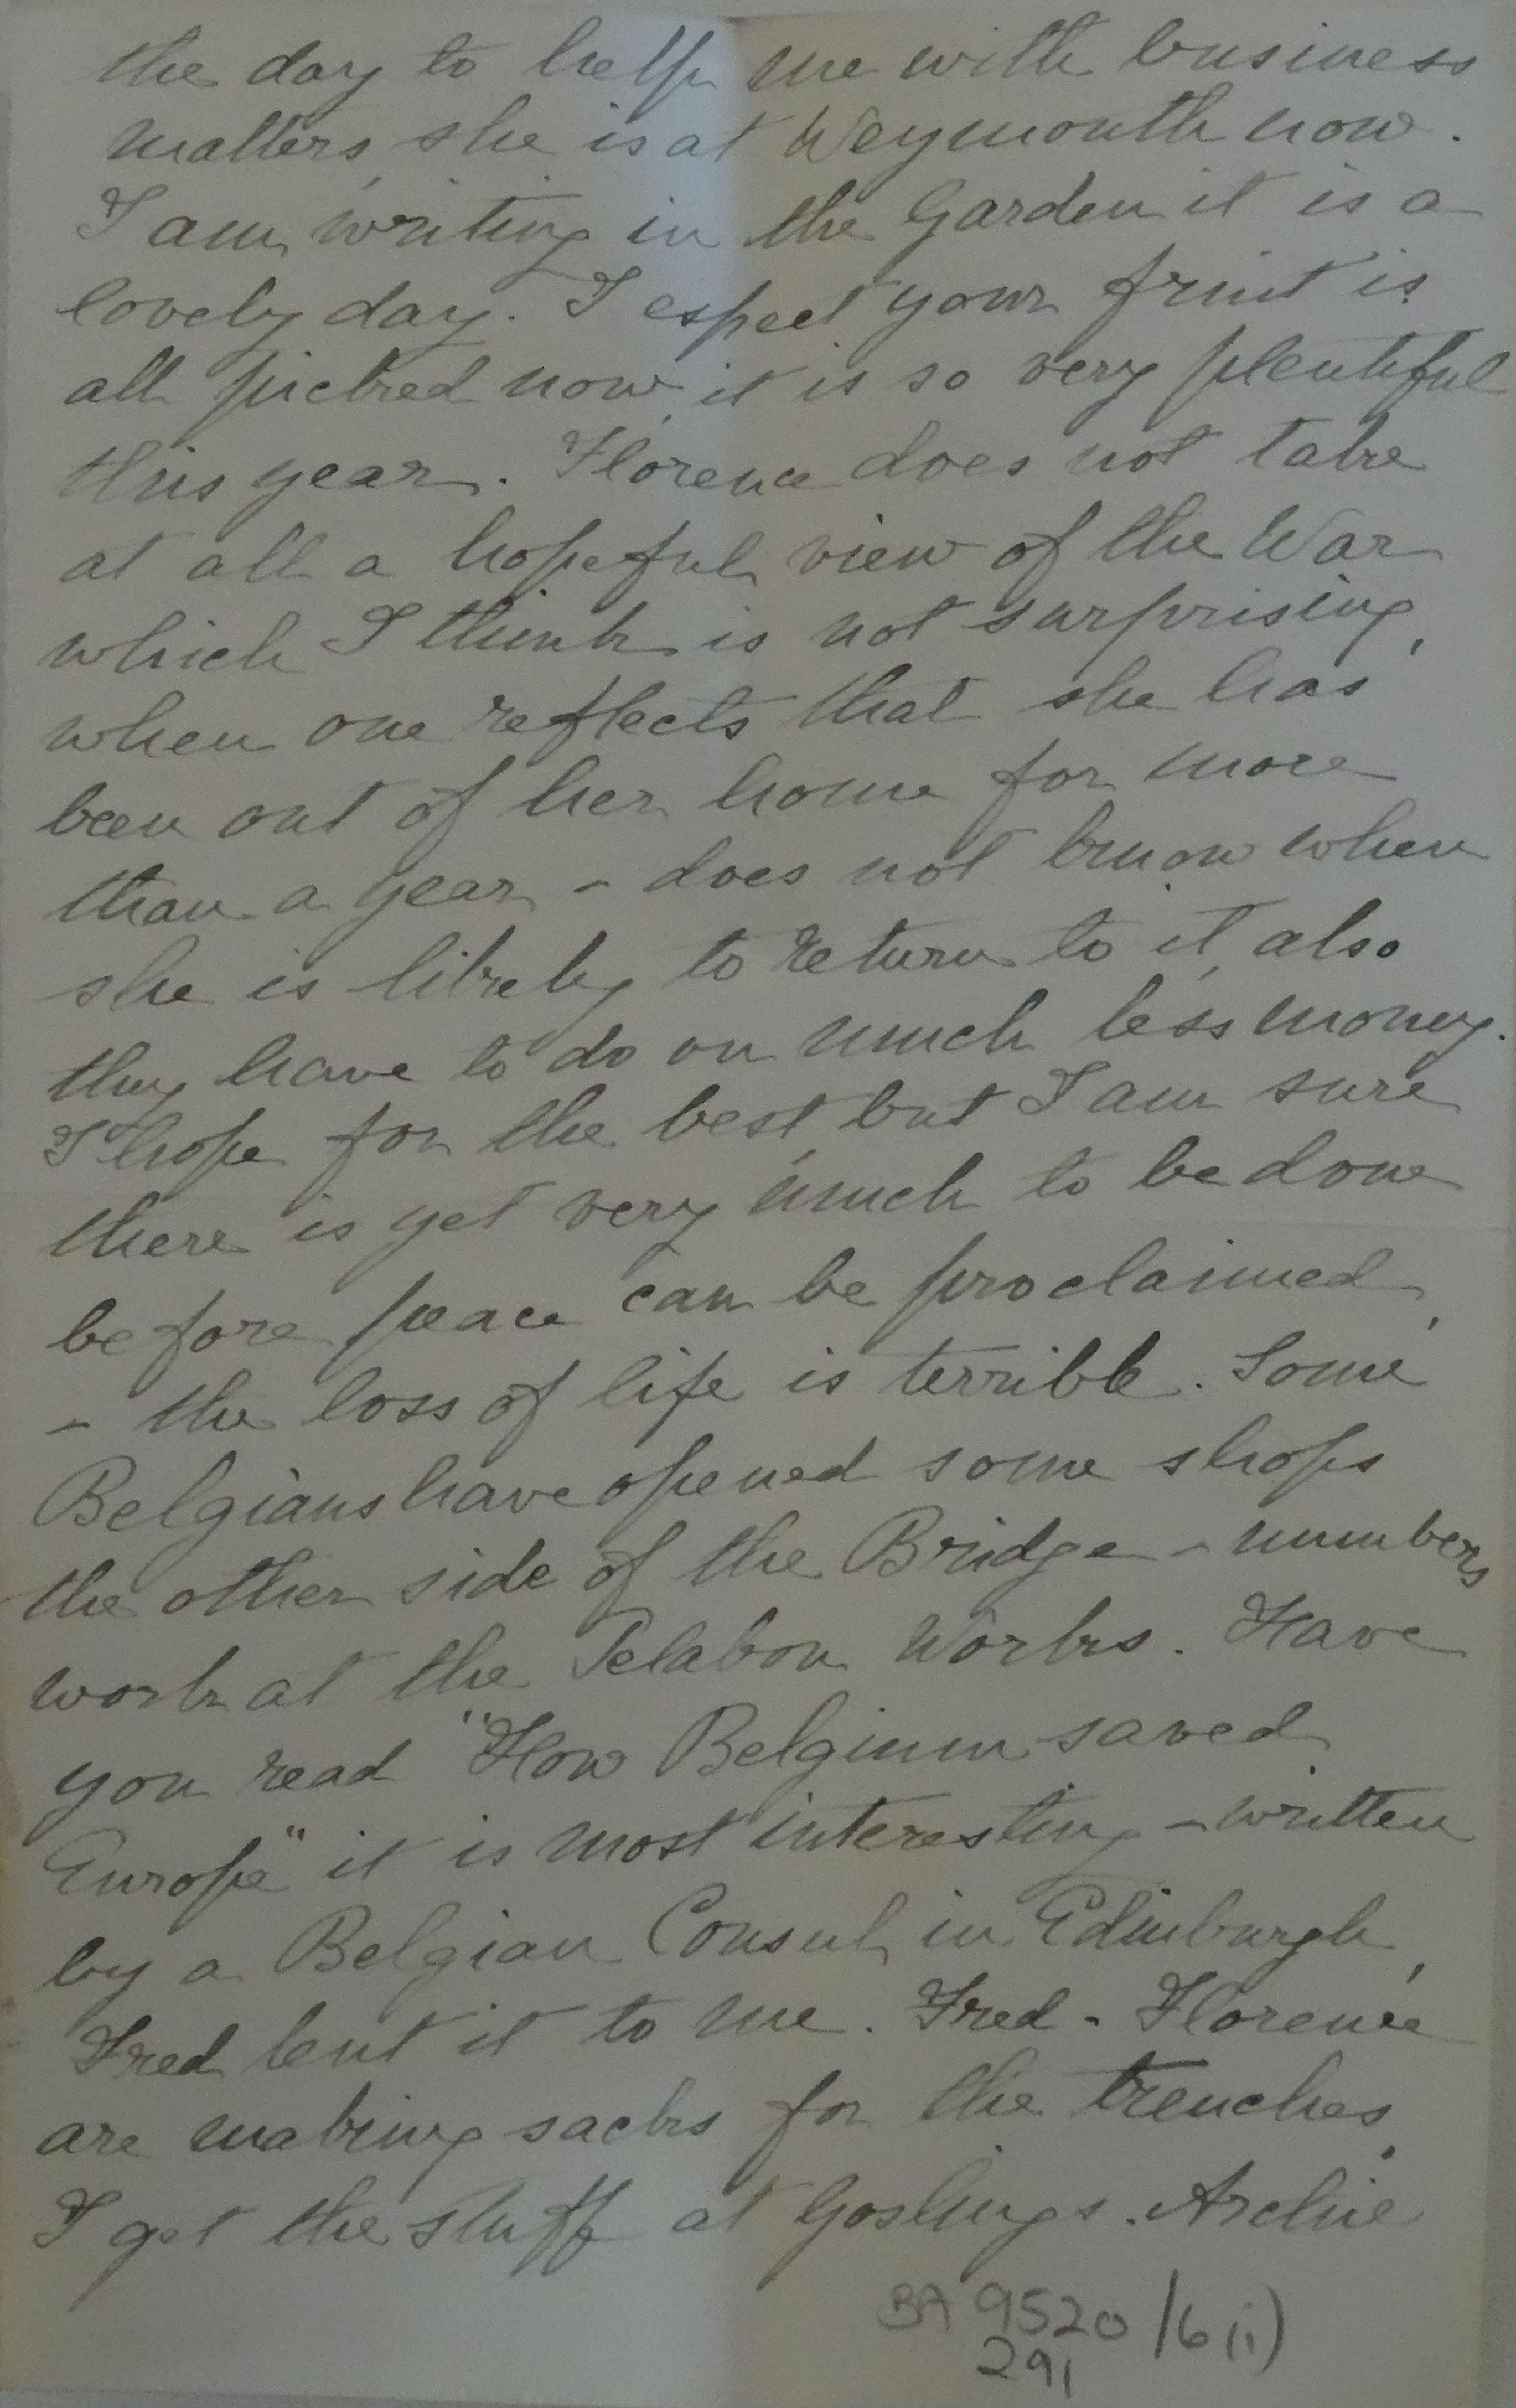 the day to help me with business
matters, she is at Weymouth now.
I am writing in the Garden it is a
lovely day. I expect your fruit is
all picked now, it is so very plentiful
this year. Florence does not take
at all a hopeful view of the War
which I think is not surprising,
when one reflects that she has
been out of her home for more
than a year - does not know when
she is likely to return to it, also
they have to do on much less money.
I hope for the best, but I am sure
there is yet very much to be done
before peace can be proclaimed,
- the loss of life is terrible. Some
Belgians have opened some shops
the other side of the Bridge - numbers
work at the Pelabon Works. Have
you read "How Belgium saved
Europe" it is most interesting - written
by a Belgian Consul in Edinburgh,
Fred lent it to me. Fred - Florence
are making sacks for the trenches,
I get the stuff at Goslings. Archie
BA 9520/6(i)
291